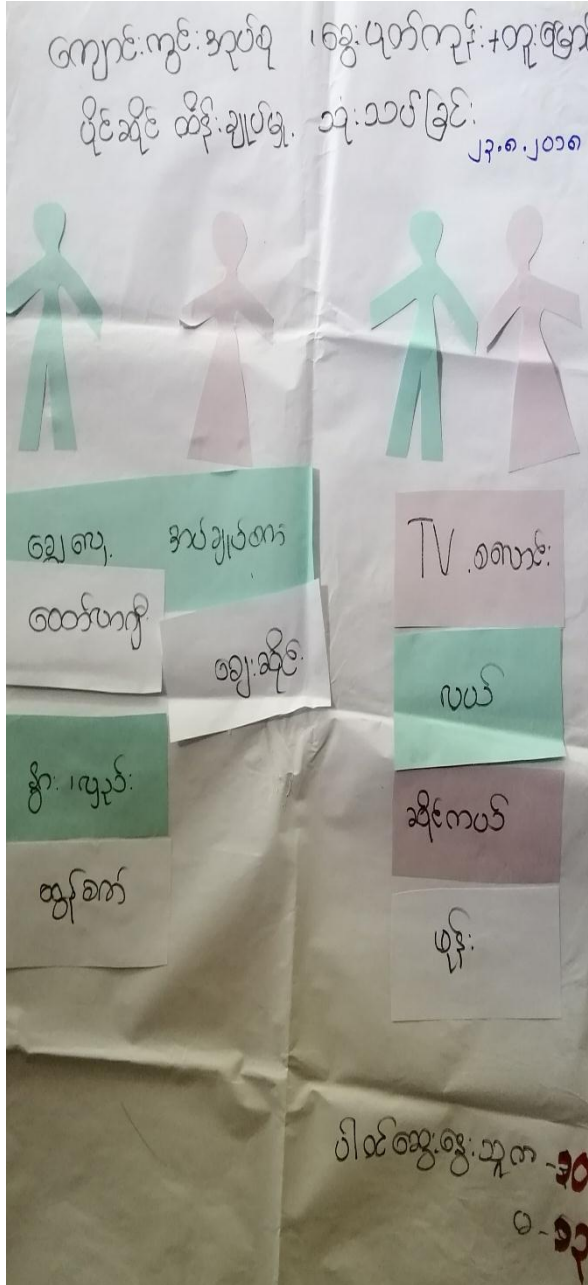 ကျောင်းကွင်းအုပ်စု ၊ခွေးပုတ်ကုန်း+တူးမြော
ပိုင်ဆိုင် ထိန်းချုပ်မှု. သုံးသပ်ခြင်း
၂၃.၈.၂၀၁၈
ချွေလှေ့ အပ်ချုပ်စက်
ထော်လာဂျီ
ဈေးဆိုင်
နွား ၊လှည်း
ထွန်စက်
TV .စလောင်း
လယ်
ဆိုင်ကယ်
ဖုန်း
ပါဝင်ဆွေးနွေးသူက -၃၀
မ-၁၃